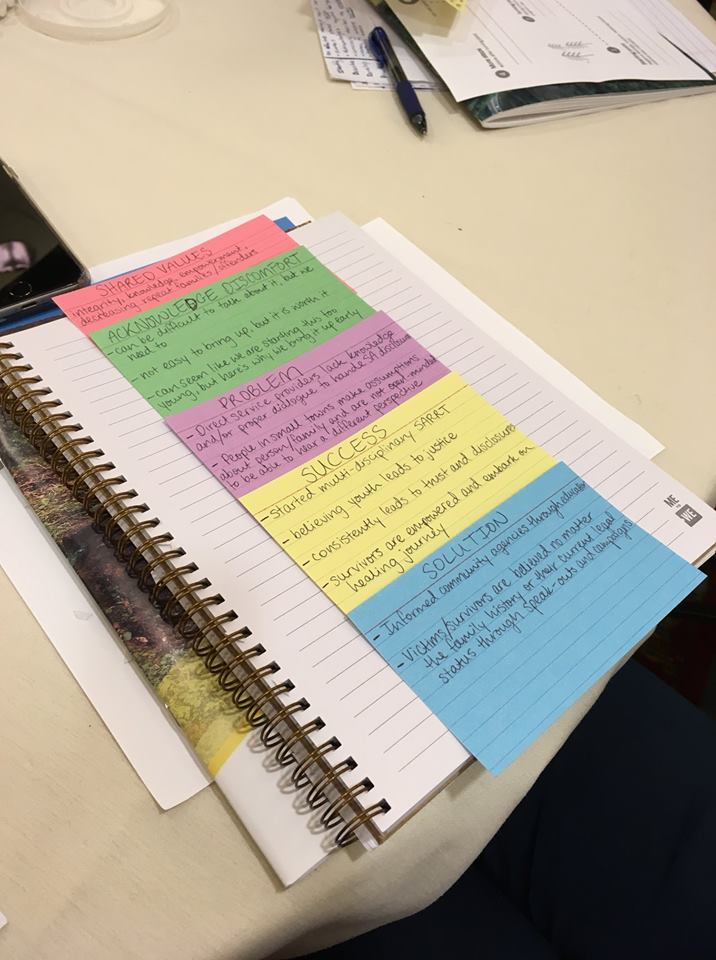 SHARED VALUES
integrity, knowledge, empowerment,
decreasing repeat families/offenders
ACKNOWLEDGE DISCOMFORT
- can be difficult to talk about it, but we
need to
- not easy to bring up, but it is worth it
- can seem like we are starting this too
young, but here's why we bring it up early
PROBLEM
- Direct service providers lack knowledge
and/or proper dialogue to handle SA disclosure
- People in small towns make assumptions
about person/family and are not open-minded
to be able to hear a different perspective
SUCCESS
- started multi-disciplinary SARRT
- believing youth leads to justice
- consistently leads to trust and disclosures
- survivors are empowered and embark on
healing journey
SOLUTION
- Informed community agencies through education
- Victims/survivors are believed no matter
the family history or their current legal
status through speak-outs and campaigns
ME
WE